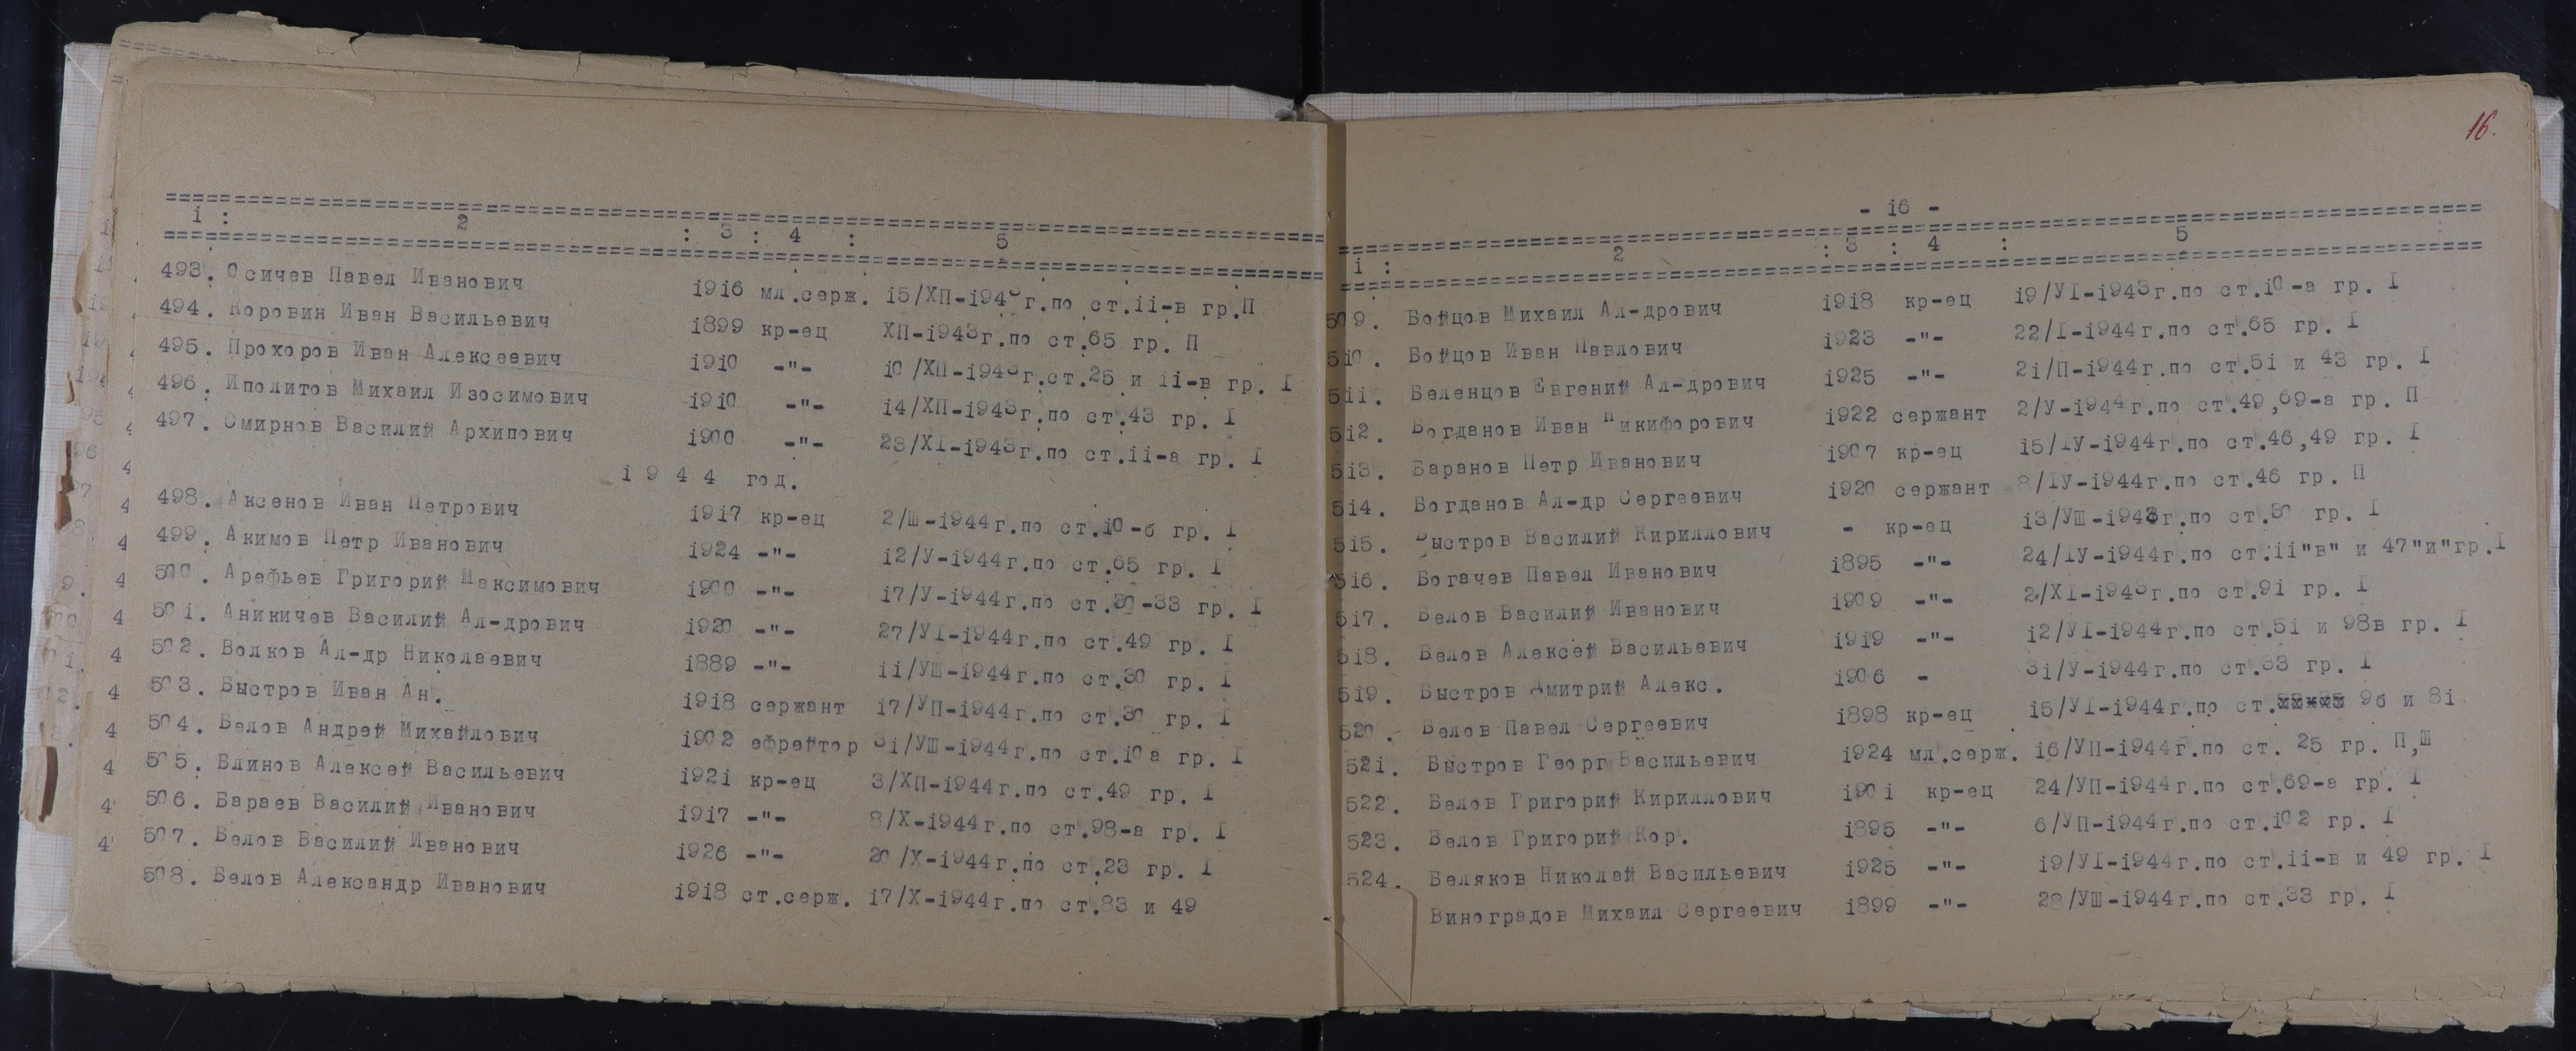 1 : 2 : 3 : 4 : 5
493. Осичев Павел Иванович i9i6 мл.серж. i5/ХП-i943г.по ст.ii-в гр.П
494. Коровин Иван Васильевич i899 кр-ец ХП-i943г.по ст.65 гр. П
495. Прохоров Иван Алексеевич i9i0 -"- i0/ХП-i943г.ст.25 и ii-в гр. I
496. Иполитов Михаил Изосимович i9i0 -"- i4/ХП-i943г.по ст.43 гр. I
497. Смирнов Василий Архипович i900 -"- 23/XI-i943г.по ст.ii-а гр. I
i 9 4 4 год.
498. Аксенов Иван Петрович i9i7 кр-ец 2/Ш-i944г.по ст.i0-б гр. I
499. Акимов Петр Иванович i924 -"- i2/У-i944г.по ст.65 гр. I
500. Арефьев Григорий Максимович i900 -"- i7/У-i944г.по ст.30-33 гр. I
50i. Аникичев Василий Ал-дрович i920 -"- 27/УI-i944г.по ст.49 гр. I
502. Волков Ал-др Николаевич i889 -"- ii/УШ-i944г.по ст.30 гр. I
503. Быстров Иван Ан. i9i8 сержант i7/УП-i944г.по ст.30 гр. I
504. Белов Андрей Михайлович i902 ефрейтор 3i/УШ-i944г.по ст.i0а гр. I
505. Блинов Алексей Васильевич i92i кр-ец 3/ХП-i944г.по ст.49 гр. I
506. Бараев Василий Иванович i9i7 -"- 8/Х-i944г.по ст.98-а гр. I
507. Белов Василий Иванович i926 -"- 20/Х-i944г.по ст.23 гр. I
508. Белов Александр Иванович i9i8 ст.серж. i7/Х-i944г.по ст.83 и 49
16.
- i6 -
i : 2 : 3 : 4 : 5
509. Бойцов Михаил Ал-дрович i9i8 кр-ец i9/УI-i943г.по ст.i0-а гр. I
5i0. Бойцов Иван Павлович i923 -"- 22/I-i944г.по ст.65 гр. I
5ii. Беленцов Евгений Ал-дрович i925 -"- 2i/П-i944г.по ст.5i и 43 гр. I
5i2. Богданов Иван Никифорович i922 сержант 2/У-i944г.по ст.49,69-а гр. П
5i3. Баранов Петр Иванович i907 кр-ец i5/IУ-i944г.по ст.46,49 гр. I
5i4. Богданов Ал-др Сергеевич i920 сержант 8/IУ-i944г.по ст.46 гр. П
5i5. Быстров Василий Кириллович - кр-ец i3/УШ-i943г.по ст.30 гр. I
5i6. Богачев Павел Иванович i895 -"- 24/IУ-i944г.по ст.ii"в" и 47"и"гр.I
5i7. Белов Василий Иванович i909 -"- 2/XI-i943г.по ст.9i гр. I
5i8. Белов Алексей Васильевич i9i9 -"- i2/УI-i944г.по ст.5i и 98в гр. I
5i9. Быстров Дмитрий Алекс. i906 - 3i/У-i944г.по ст.33 гр. I
520. Белов Павел Сергеевич i898 кр-ец i5/УI-i944г.по ст. 96 и 8i
52i. Быстров Георг Васильевич i924 мл.серж. i6/УП-i944г.по ст. 25 гр. П,Ш
522. Белов Григорий Кириллович i90i кр-ец 24/УП-i944г.по ст.69-а гр. I
523. Белов Григорий Кор. i895 -"- 6/УП-i944г.по ст.i02 гр. I
524. Беляков Николай Васильевич i925 -"- i9/УI-i944г.по ст.ii-в и 49 гр. I
Виноградов Михаил Сергеевич i899 -"- 28/УШ-i944г.по ст.33 гр. I